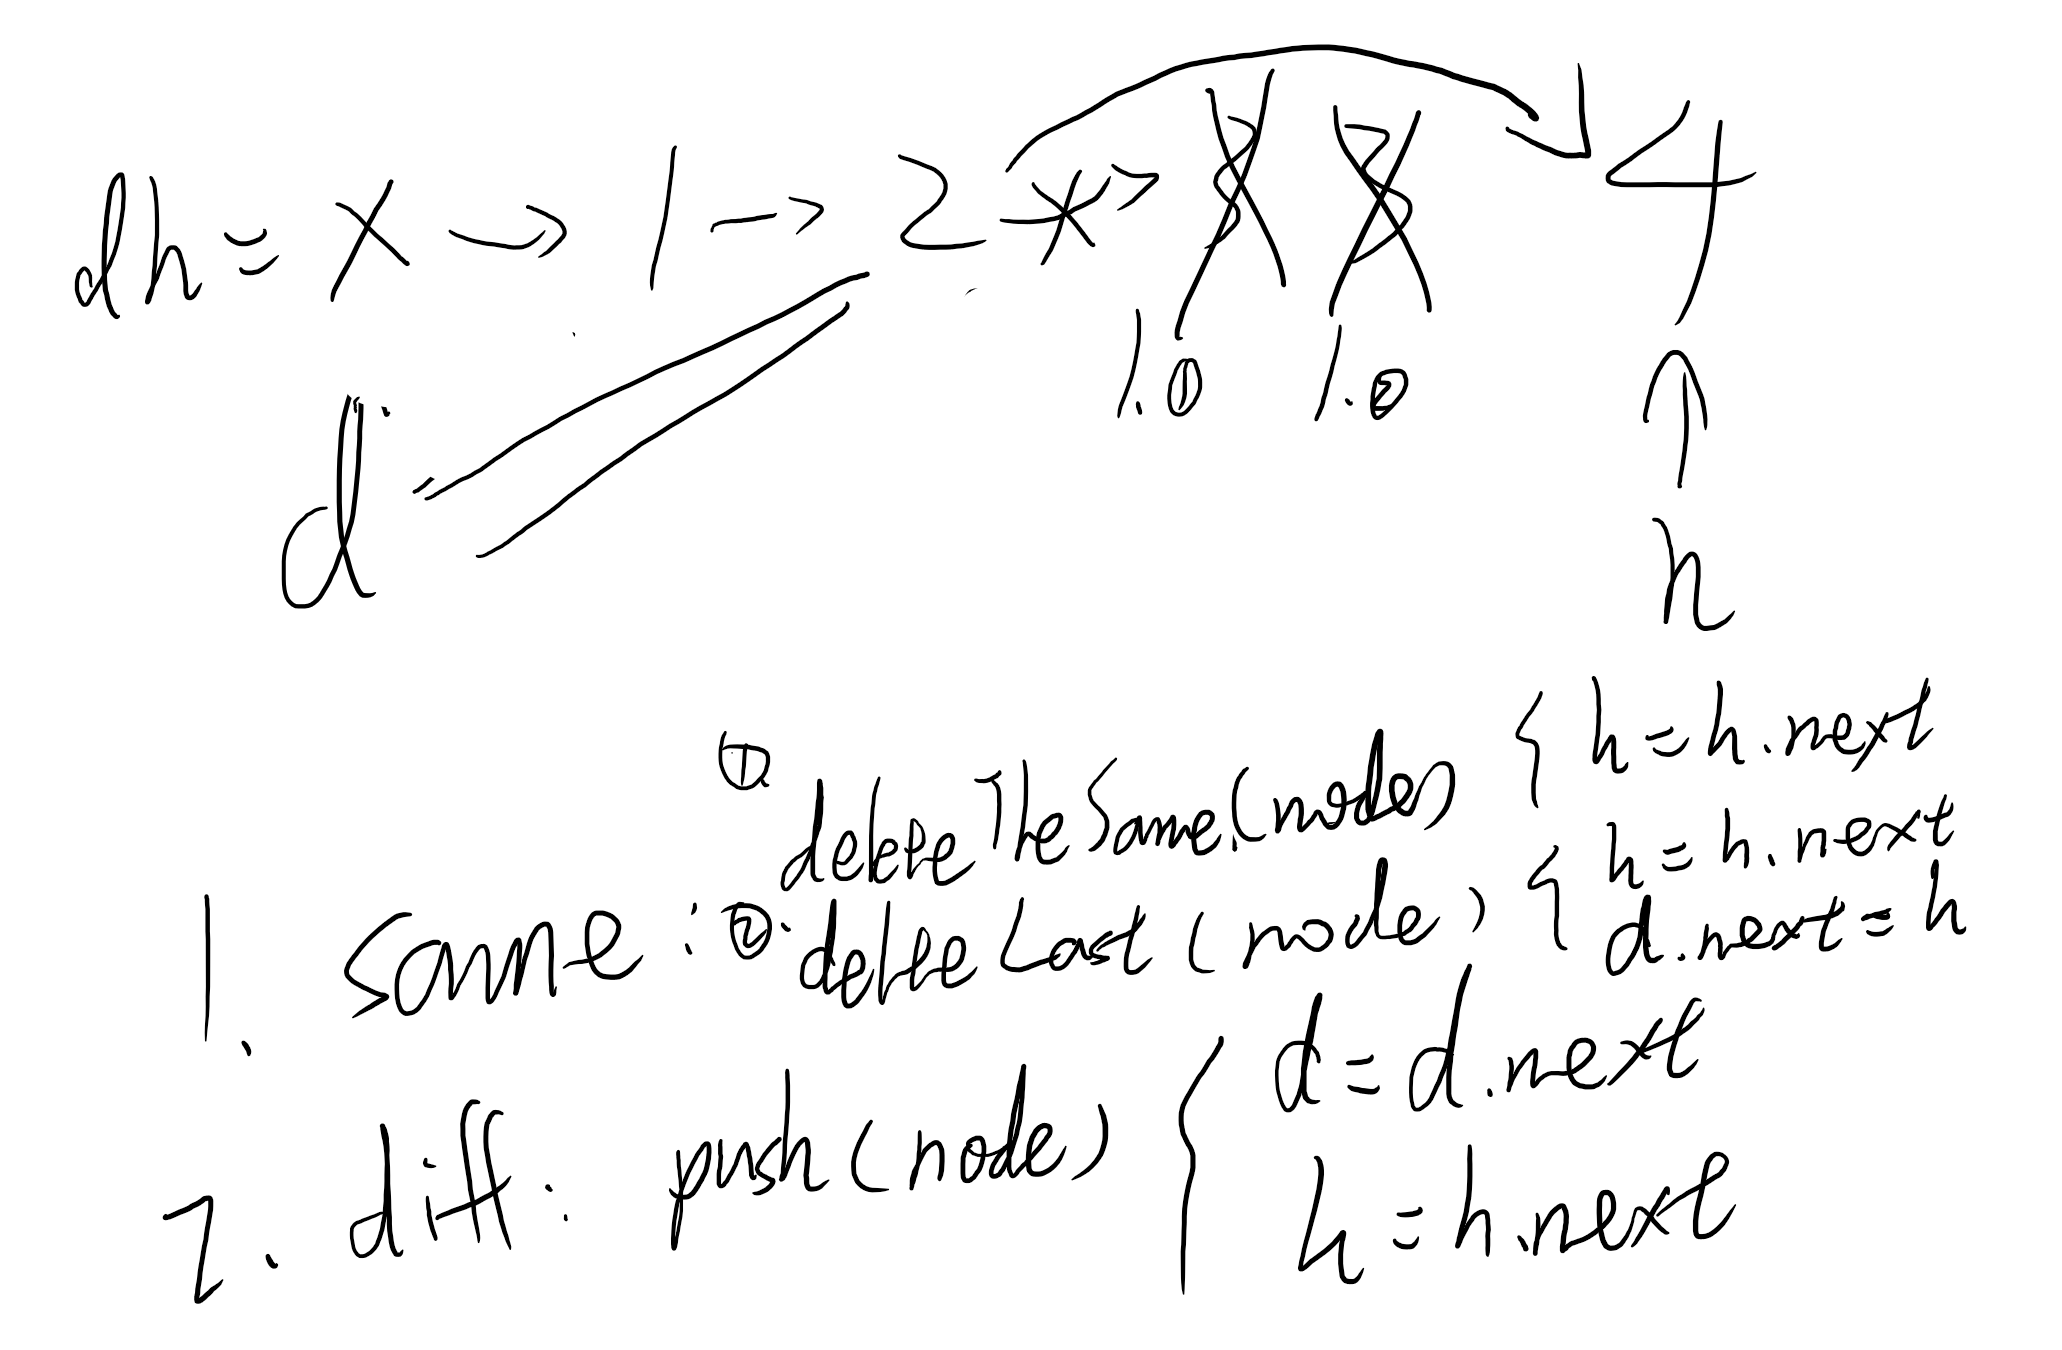 dh = x → 1 → 2 → 3 3 4
1.① 1.②
d
h
① deleteTheSame(node) { h = h.next
1. same: ②. deleteLast(node) { h = h.next
d.next = h
2. diff: push(node) { d = d.next
h = h.next